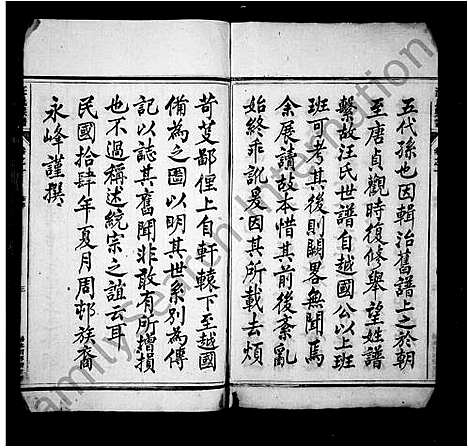 五代孫也因輯治舊譜上之於朝
至唐貞觀時復修舉望姓譜
繫故汪氏世譜自越國公以上班
班可考其後則闕畧無聞焉
余展讀故本惜其前後紊亂
始終乖訛晸因其所載去煩
苛芟鄙俚上自軒轅下至越國
備為之圖以明其世系別為傳
記以誌其舊聞非敢有所增損
也不過稱述統宗之誼云耳
民國拾肆年夏月周邨族裔
永峰謹撰
FamilySearch International